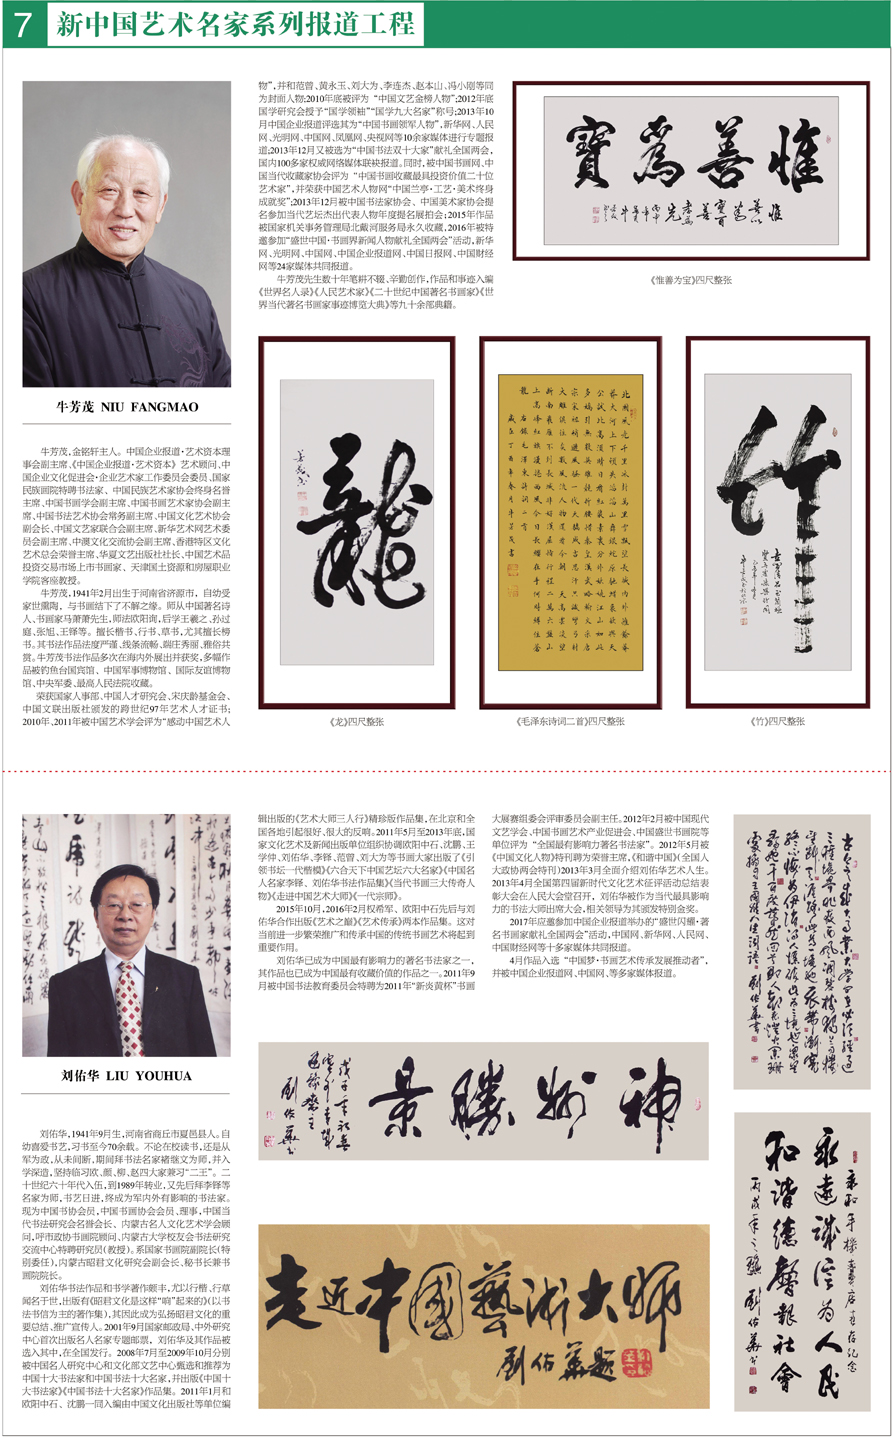 7
新中国艺术名家系列报道工程
牛芳茂 NIU FANGMAO
牛芳茂,金铭轩主人。中国企业报道·艺术资本理
事会副主席、《中国企业报道·艺术资本》艺术顾问、中
国企业文化促进会·企业艺术家工作委员会委员、国家
民族画院特聘书法家、中国民族艺术家协会终身名誉
主席、中国书画学会副主席、中国书画艺术家协会副主
席、中国书法艺术协会常务副主席、中国文化艺术协会
副会长、中国文艺家联合会副主席、新华艺术网艺术委
员会副主席、中澳文化交流协会副主席、香港特区文化
艺术总会荣誉主席、华夏文艺出版社社长、中国艺术品
投资交易市场上市书画家、天津国土资源和房屋职业
学院客座教授。
牛芳茂,1941年2月出生于河南省济源市,自幼受
家世熏陶,与书画结下了不解之缘。师从中国著名诗
人、书画家马萧萧先生,师法欧阳询,后学王羲之、孙过
庭、张旭、王铎等。擅长楷书、行书、草书,尤其擅长榜
书。其书法作品法度严谨、线条流畅、端庄秀丽、雅俗共
赏。牛芳茂书法作品多次在海内外展出并获奖,多幅作
品被钓鱼台国宾馆、中国军事博物馆、国际友谊博物
馆、中央军委、最高人民法院收藏。
荣获国家人事部、中国人才研究会、宋庆龄基金会、
中国文联出版社颁发的跨世纪97年艺术人才证书;
2010年、2011年被中国艺术学会评为“感动中国艺术人
物”,并和范曾、黄永玉、刘大为、李连杰、赵本山、冯小刚等同
为封面人物;2010年底被评为“中国文艺金榜人物”;2012年底
国学研究会授予“国学领袖”“国学九大名家”称号;2013年10
月中国企业报道评选其为“中国书画领军人物”,新华网、人民
网、光明网、中国网、凤凰网、央视网等10余家媒体进行专题报
道;2013年12月又被选为“中国书法双十大家”献礼全国两会,
国内100多家权威网络媒体联袂报道。同时,被中国书画网、中
国当代收藏家协会评为“中国书画收藏最具投资价值二十位
艺术家”,并荣获中国艺术人物网“中国兰亭·工艺·美术终身
成就奖”;2013年12月被中国书法家协会、中国美术家协会提
名参加当代艺坛杰出代表人物年度提名展拍会;2015年作品
被国家机关事务管理局北戴河服务局永久收藏,2016年被特
邀参加“盛世中国·书画界新闻人物献礼全国两会”活动,新华
网、光明网、中国网、中国企业报道网、中国日报网、中国财经
网等24家媒体共同报道。
牛芳茂先生数十年笔耕不辍、辛勤创作,作品和事迹入编
《世界名人录》《人民艺术家》《二十世纪中国著名书画家》《世
界当代著名书画家事迹博览大典》等九十余部典籍。
惟善為寶
《惟善为宝》四尺整张
龍
《龙》四尺整张
《毛泽东诗词二首》四尺整张
竹
《竹》四尺整张
刘佑华 LIU YOUHUA
刘佑华,1941年9月生,河南省商丘市夏邑县人。自
幼喜爱书艺,习书至今70余载。不论在校读书,还是从
军为政,从未间断,期间拜书法名家褚继文为师,并入
学深造,坚持临习欧、颜、柳、赵四大家兼习“二王”。二
十世纪六十年代入伍,到1989年转业,又先后拜李铎等
名家为师,书艺日进,终成为军内外有影响的书法家。
现为中国书协会员,中国书画协会会员、理事,中国当
代书法研究会名誉会长、内蒙古名人文化艺术学会顾
问,呼市政协书画院顾问、内蒙古大学校友会书法研究
交流中心特聘研究员(教授)。系国家书画院副院长(特
别委任),内蒙古昭君文化研究会副会长、秘书长兼书
画院院长。
刘佑华书法作品和书学著作颇丰,尤以行楷、行草
闻名于世,出版有《昭君文化是这样“响”起来的》(以书
法书信为主的著作集),其因此成为弘扬昭君文化的重
要总结、推广宣传人。2001年9月国家邮政局、中外研究
中心首次出版名人名家专题邮票,刘佑华及其作品被
选入其中,在全国发行。2008年7月至2009年10月分别
被中国名人研究中心和文化部文艺中心甄选和推荐为
中国十大书法家和中国书法十大名家,并出版《中国十
大书法家》《中国书法十大名家》作品集。2011年1月和
欧阳中石、沈鹏一同入编由中国文化出版社等单位编
辑出版的《艺术大师三人行》精珍版作品集,在北京和全
国各地引起很好、很大的反响。2011年5月至2013年底,国
家文化艺术及新闻出版单位组织协调欧阳中石、沈鹏、王
学仲、刘佑华、李铎、范曾、刘大为等书画大家出版了《引
领书坛一代楷模》《六合天下中国艺坛六大名家》《中国名
人名家李铎、刘佑华书法作品集》《当代书画三大传奇人
物》《走进中国艺术大师》《一代宗师》。
2015年10月,2016年2月权希军、欧阳中石先后与刘
佑华合作出版《艺术之巅》《艺术传承》两本作品集。这对
当前进一步繁荣推广和传承中国的传统书画艺术将起到
重要作用。
刘佑华已成为中国最有影响力的著名书法家之一,
其作品也已成为中国最有收藏价值的作品之一。2011年9
月被中国书法教育委员会特聘为2011年“新炎黄杯”书画
大展赛组委会评审委员会副主任。2012年2月被中国现代
文艺学会、中国书画艺术产业促进会、中国盛世书画院等
单位评为“全国最有影响力著名书法家”。2012年5月被
《中国文化人物》特刊聘为荣誉主席,《和谐中国》(全国人
大政协两会特刊)2013年3月全面介绍刘佑华艺术人生。
2013年4月全国第四届新时代文化艺术征评活动总结表
彰大会在人民大会堂召开,刘佑华被作为当代最具影响
力的书法大师出席大会,相关领导为其颁发特别金奖。
2017年应邀参加中国企业报道举办的“盛世闪耀·著
名书画家献礼全国两会”活动,中国网、新华网、人民网、
中国财经网等十多家媒体共同报道。
4月作品入选“中国梦·书画艺术传承发展推动者”,
并被中国企业报道网、中国网、等多家媒体报道。
神州勝景
走近中國藝術大師
劉佑華題
永遠誠信为人民
和諧德馨報社會